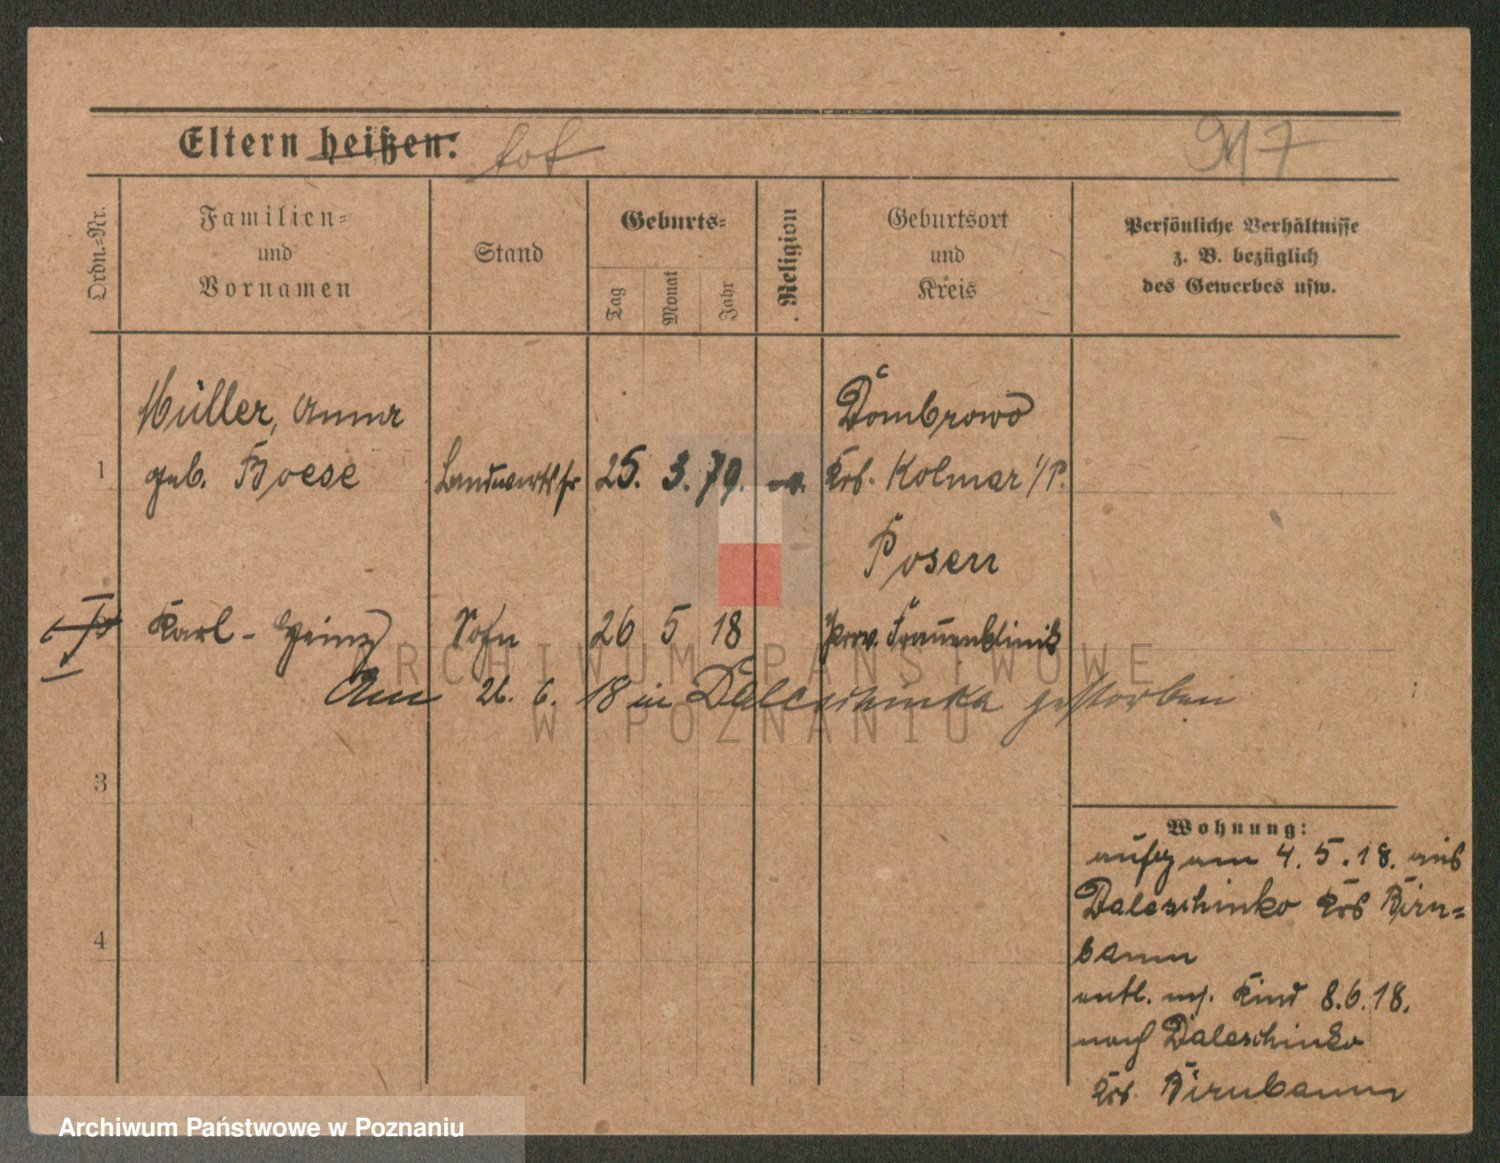 Eltern heißen: tot
917
Ordn.-Nr.
Familien-
und
Vornamen
Stand
Geburts-
Tag
Monat
Jahr
Religion
Geburtsort
und
Kreis
Persönliche Verhältnisse
z. B. bezüglich
des Gewerbes usw.
Müller, Anna
geb. Boese
1
Landwirtsfr
25. 3. 79. ev.
Dombrowo
Krs. Kolmar i/P.
Posen
Karl-Heinz Sohn 26 5 18 Prov. Frauenklinik
Am 26. 6. 18 in Daleschinka gestorben
3
4
Wohnung:
aufg am 4. 5. 18. aus
Daleschinko Krs Birn-
baum
entl. m. Kind 8.6.18.
nach Daleschinko
Krs. Birnbaum
ARCHIWUM PAŃSTWOWE
W POZNANIU
Archiwum Państwowe w Poznaniu